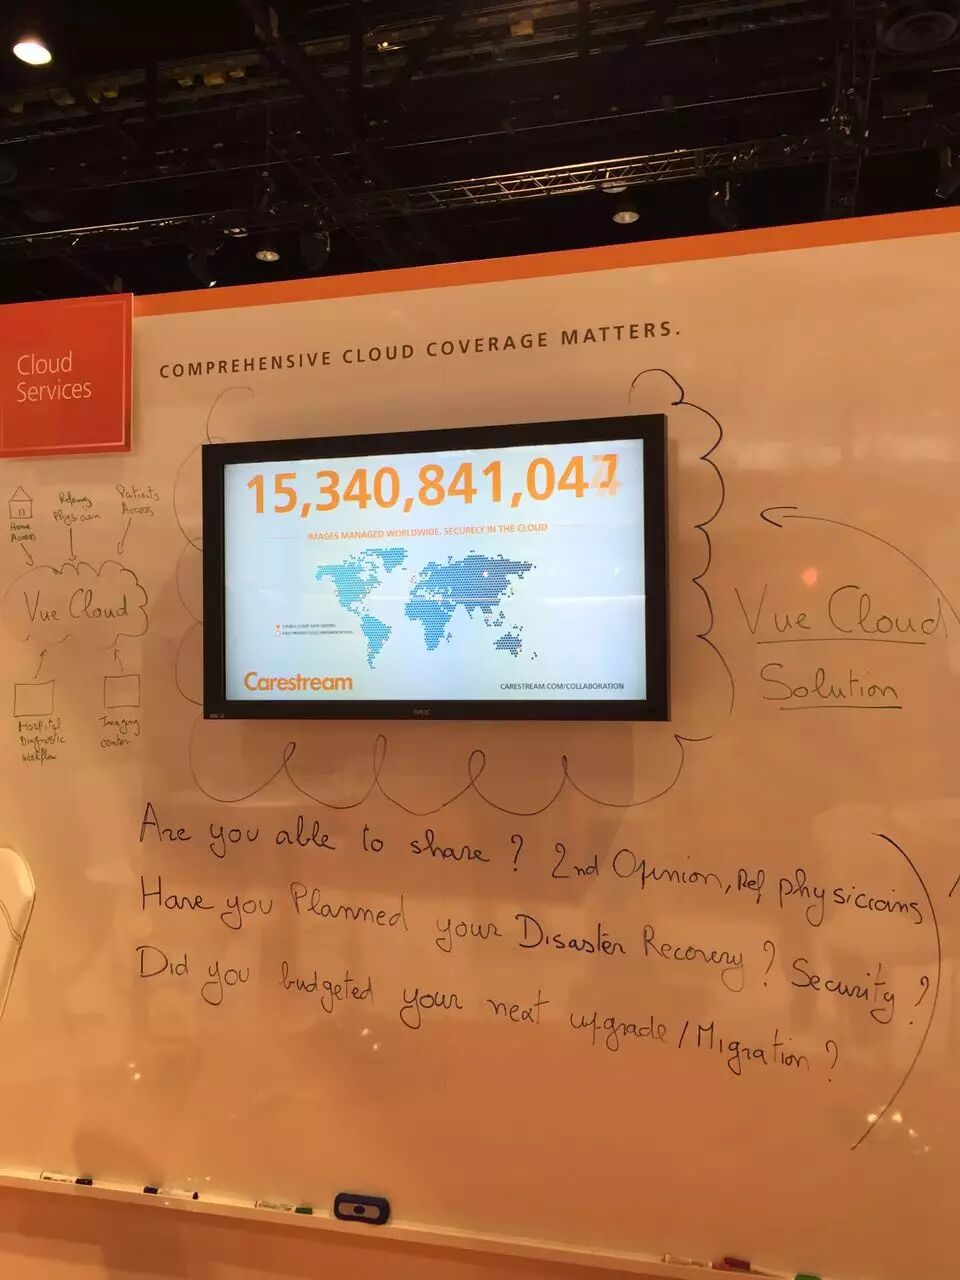 COMPREHENSIVE CLOUD COVERAGE MATTERS.
Cloud
Services
15,340,841,04
IMAGES MANAGED WORLDWIDE, SECURELY IN THE CLOUD
Carestream
CARESTREAM.COM/COLLABORATION
NEC
Home
Access
Physician
Patients
Access
Vue Cloud
Hospital
Diagnostic
Workflow
Imaging
center
Vue Cloud
Solution
Are you able to share ? 2nd Opinion, Ref physicians
Have you Planned your Disaster Recovery ? Security ?
Did you budgeted your next upgrade/Migration ?